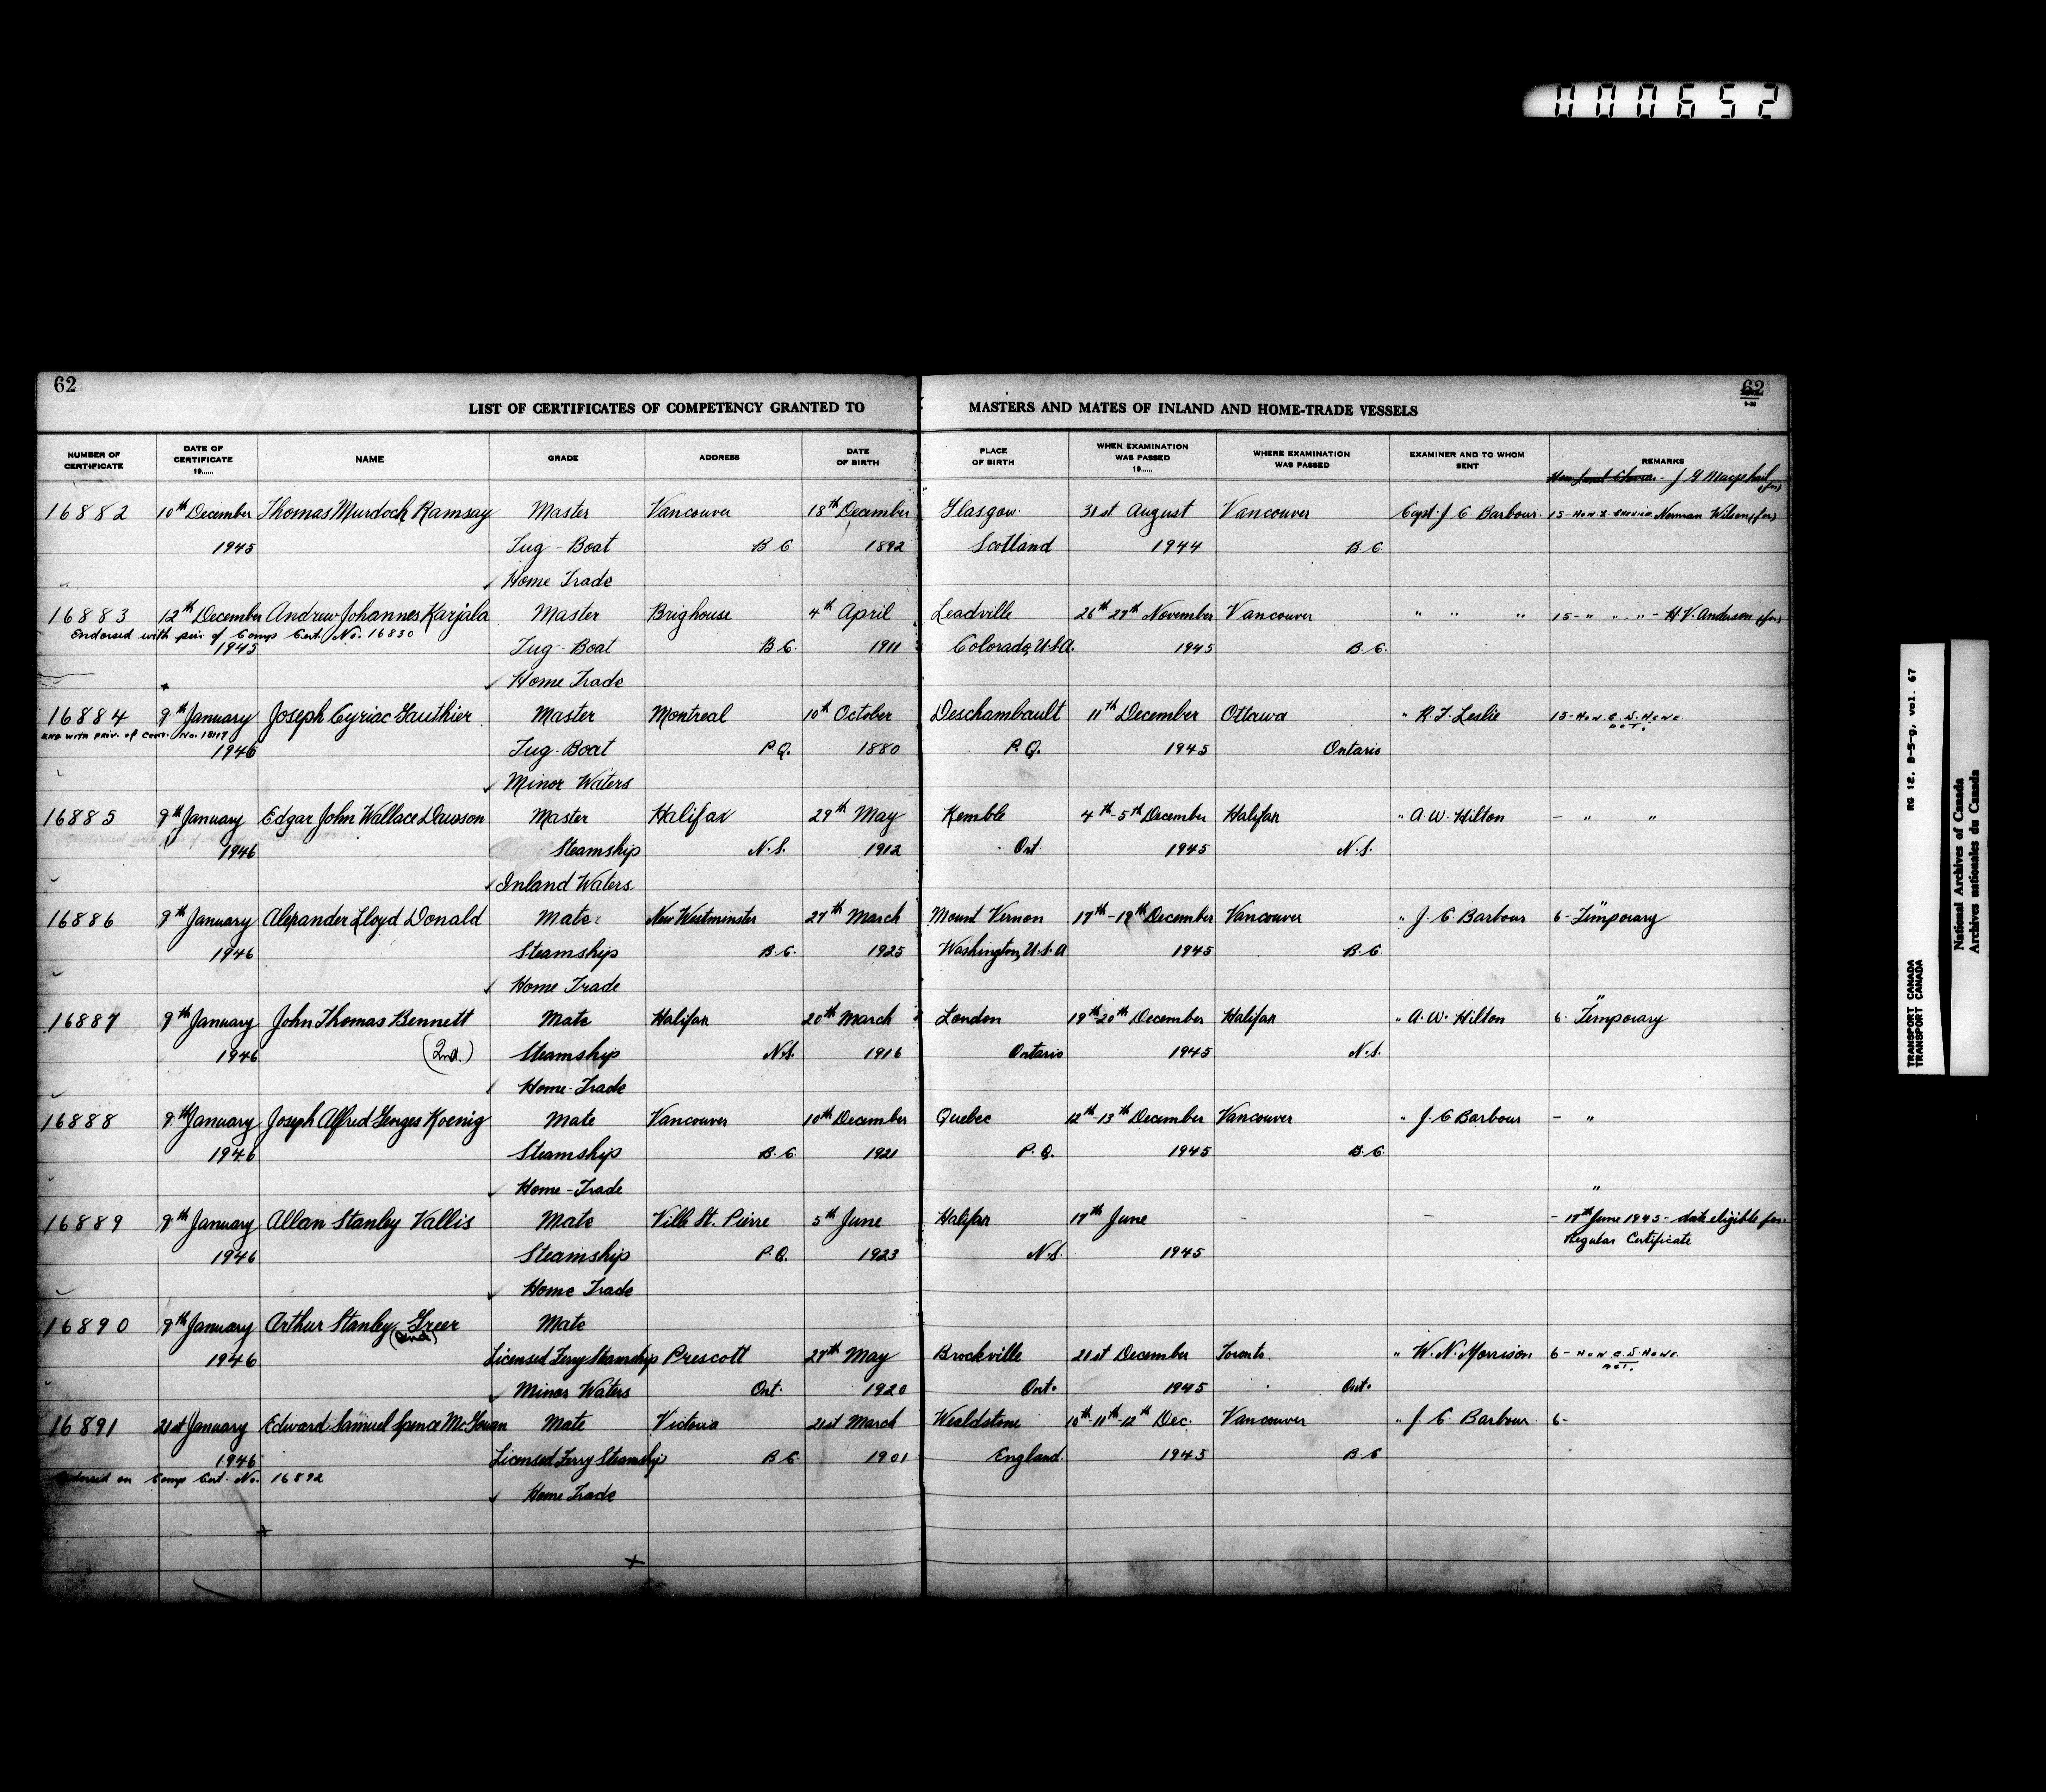 000652
62
62
LIST OF CERTIFICATES OF COMPETENCY GRANTED TO MASTERS AND MATES OF INLAND AND HOME-TRADE VESSELS
NUMBER OF CERTIFICATE DATE OF CERTIFICATE 19..... NAME GRADE ADDRESS DATE OF BIRTH PLACE OF BIRTH WHEN EXAMINATION WAS PASSED 19..... WHERE EXAMINATION WAS PASSED EXAMINER AND TO WHOM SENT REMARKS
16882 10th December Thomas Murdoch Ramsay Master Vancouver 18th December Glasgow 31st August Vancouver Capt. J C Barbour 15- Norman Wilson (for)
1945 Tug-Boat B C 1892 Scotland 1944 B.C.
Home Trade
16883 12th December Andrew Johannes Karjala Master Brighouse 4th April Leadville 26th-27th November Vancouver " " " 15- " " " - H.V. Anderson (for)
Endorsed with priv. of Comp Cert. No. 16830
1945 Tug-Boat B.C. 1911 Colorado, U.S.A. 1945 B.C.
Home Trade
16884 9th January Joseph Cyriac Gauthier Master Montreal 10th October Deschambault 11th December Ottawa " R.F. Leslie 15- Hon. C.D. Howe
End with priv. of Cert. No. 18117 act.
1946 Tug-Boat P.Q. 1880 P.Q. 1945 Ontario
Minor Waters
16885 9th January Edgar John Wallace Dawson Master Halifax 29th May Kemble 4th-5th December Halifax " A.W. Hilton - " "
1946 Steamship N.S. 1912 Ont. 1945 N.S.
Inland Waters
16886 9th January Alexander Lloyd Donald Mate New Westminster 27th March Mount Vernon 17th-19th December Vancouver " J. C Barbour 6- Temporary "
1946 Steamship B.C. 1925 Washington, U.S.A 1945 B.C.
Home Trade
16887 9th January John Thomas Bennett Mate Halifax 20th March London 19th-20th December Halifax " A.W. Hilton 6- Temporary "
1946 (2nd.) Steamship N.S. 1916 Ontario 1945 N.S.
Home-Trade
16888 9th January Joseph Alfred Georges Koenig Mate Vancouver 10th December Quebec 12th-13th December Vancouver " J. C Barbour - "
1946 Steamship B.C. 1921 P.Q. 1945 B.C.
Home-Trade "
16889 9th January Allan Stanley Vallis Mate Ville St. Pierre 5th June Halifax 17th June - - - 17th June 1945 - date eligible for
Regular Certificate
1946 Steamship P.Q. 1923 N.S. 1945
Home Trade
16890 9th January Arthur Stanley Greer Mate
(2nd)
1946 Licensed Ferry Steamship Prescott 27th May Brockville 21st December Toronto " W.N. Morrison 6- Hon. C.D. Howe
act.
Minor Waters Ont. 1920 Ont. 1945 Ont.
16891 21st January Edward Samuel Spence McGowan Mate Victoria 21st March Wealdstone 10th-11th-12th Dec. Vancouver " J. C. Barbour 6-
1946 Licensed Ferry Steamship B.C. 1901 England 1945 B.C
Endorsed on Comp Cert. No. 16892
Home Trade
RG 12, B-5-g, vol. 67
TRANSPORT CANADA
TRANSPORT CANADA
National Archives of Canada
Archives nationales du Canada